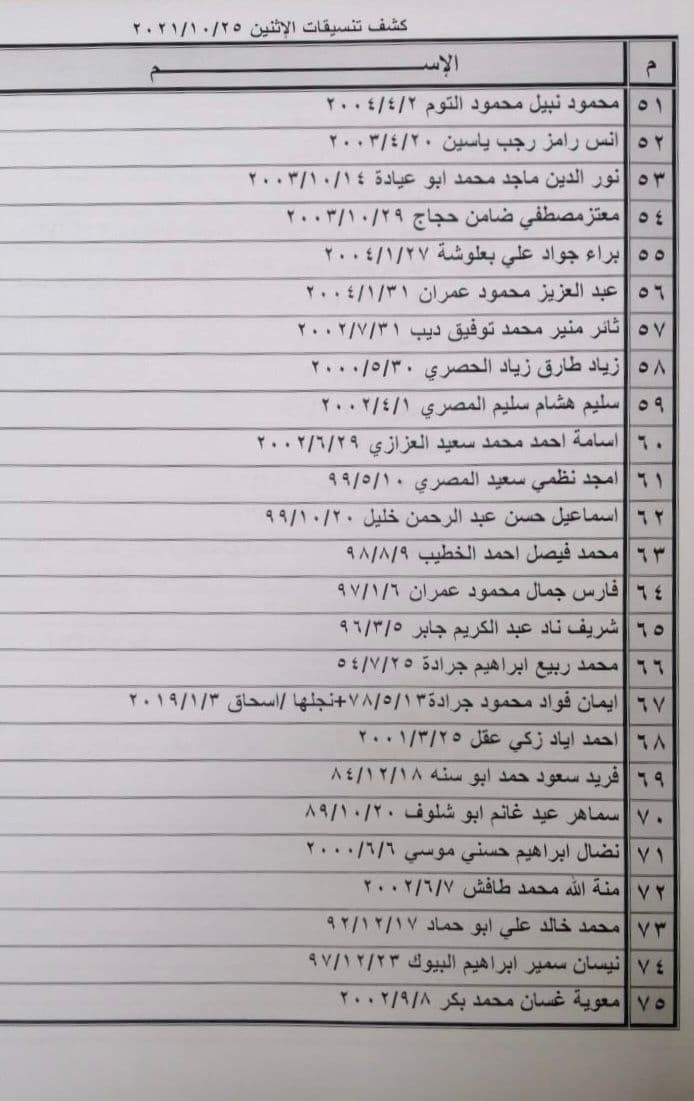 كشف تنسيقات الإثنين ٢٠٢١/١٠/٢٥
م الإســـــــــــــــــم
٥١ محمود نبيل محمود التوم ٢٠٠٤/٤/٢
٥٢ انس رامز رجب ياسين ٢٠٠٣/٤/٢٠
٥٣ نور الدين ماجد محمد ابو عيادة ٢٠٠٣/١٠/١٤
٥٤ معتزمصطفي ضامن حجاج ٢٠٠٣/١٠/٢٩
٥٥ براء جواد علي بعلوشة ٢٠٠٤/١/٢٧
٥٦ عبد العزيز محمود عمران ٢٠٠٤/١/٣١
٥٧ ثائر منير محمد توفيق ديب ٢٠٠٢/٧/٣١
٥٨ زياد طارق زياد الحصري ٢٠٠٠/٥/٣٠
٥٩ سليم هشام سليم المصري ٢٠٠٢/٤/١
٦٠ اسامة احمد محمد سعيد العزازي ٢٠٠٢/٦/٢٩
٦١ امجد نظمي سعيد المصري ٩٩/٥/١٠
٦٢ اسماعيل حسن عبد الرحمن خليل ٩٩/١٠/٢٠
٦٣ محمد فيصل احمد الخطيب ٩٨/٨/٩
٦٤ فارس جمال محمود عمران ٩٧/١/٦
٦٥ شريف ناد عبد الكريم جابر ٩٦/٣/٥
٦٦ محمد ربيع ابراهيم جرادة ٥٤/٧/٢٥
٦٧ ايمان فواد محمود جرادة٧٨/٥/١٣+نجلها /اسحاق ٢٠١٩/١/٣
٦٨ احمد اياد زكي عقل ٢٠٠١/٣/٢٥
٦٩ فريد سعود حمد ابو سنه ٨٤/١٢/١٨
٧٠ سماهر عيد غانم ابو شلوف ٨٩/١٠/٢٠
٧١ نضال ابراهيم حسني موسي ٢٠٠٠/٦/٦
٧٢ منة الله محمد طافش ٢٠٠٢/٦/٧
٧٣ محمد خالد علي ابو حماد ٩٢/١٢/١٧
٧٤ نيسان سمير ابراهيم البيوك ٩٧/١٢/٢٣
٧٥ معوية غسان محمد بكر ٢٠٠٢/٩/٨